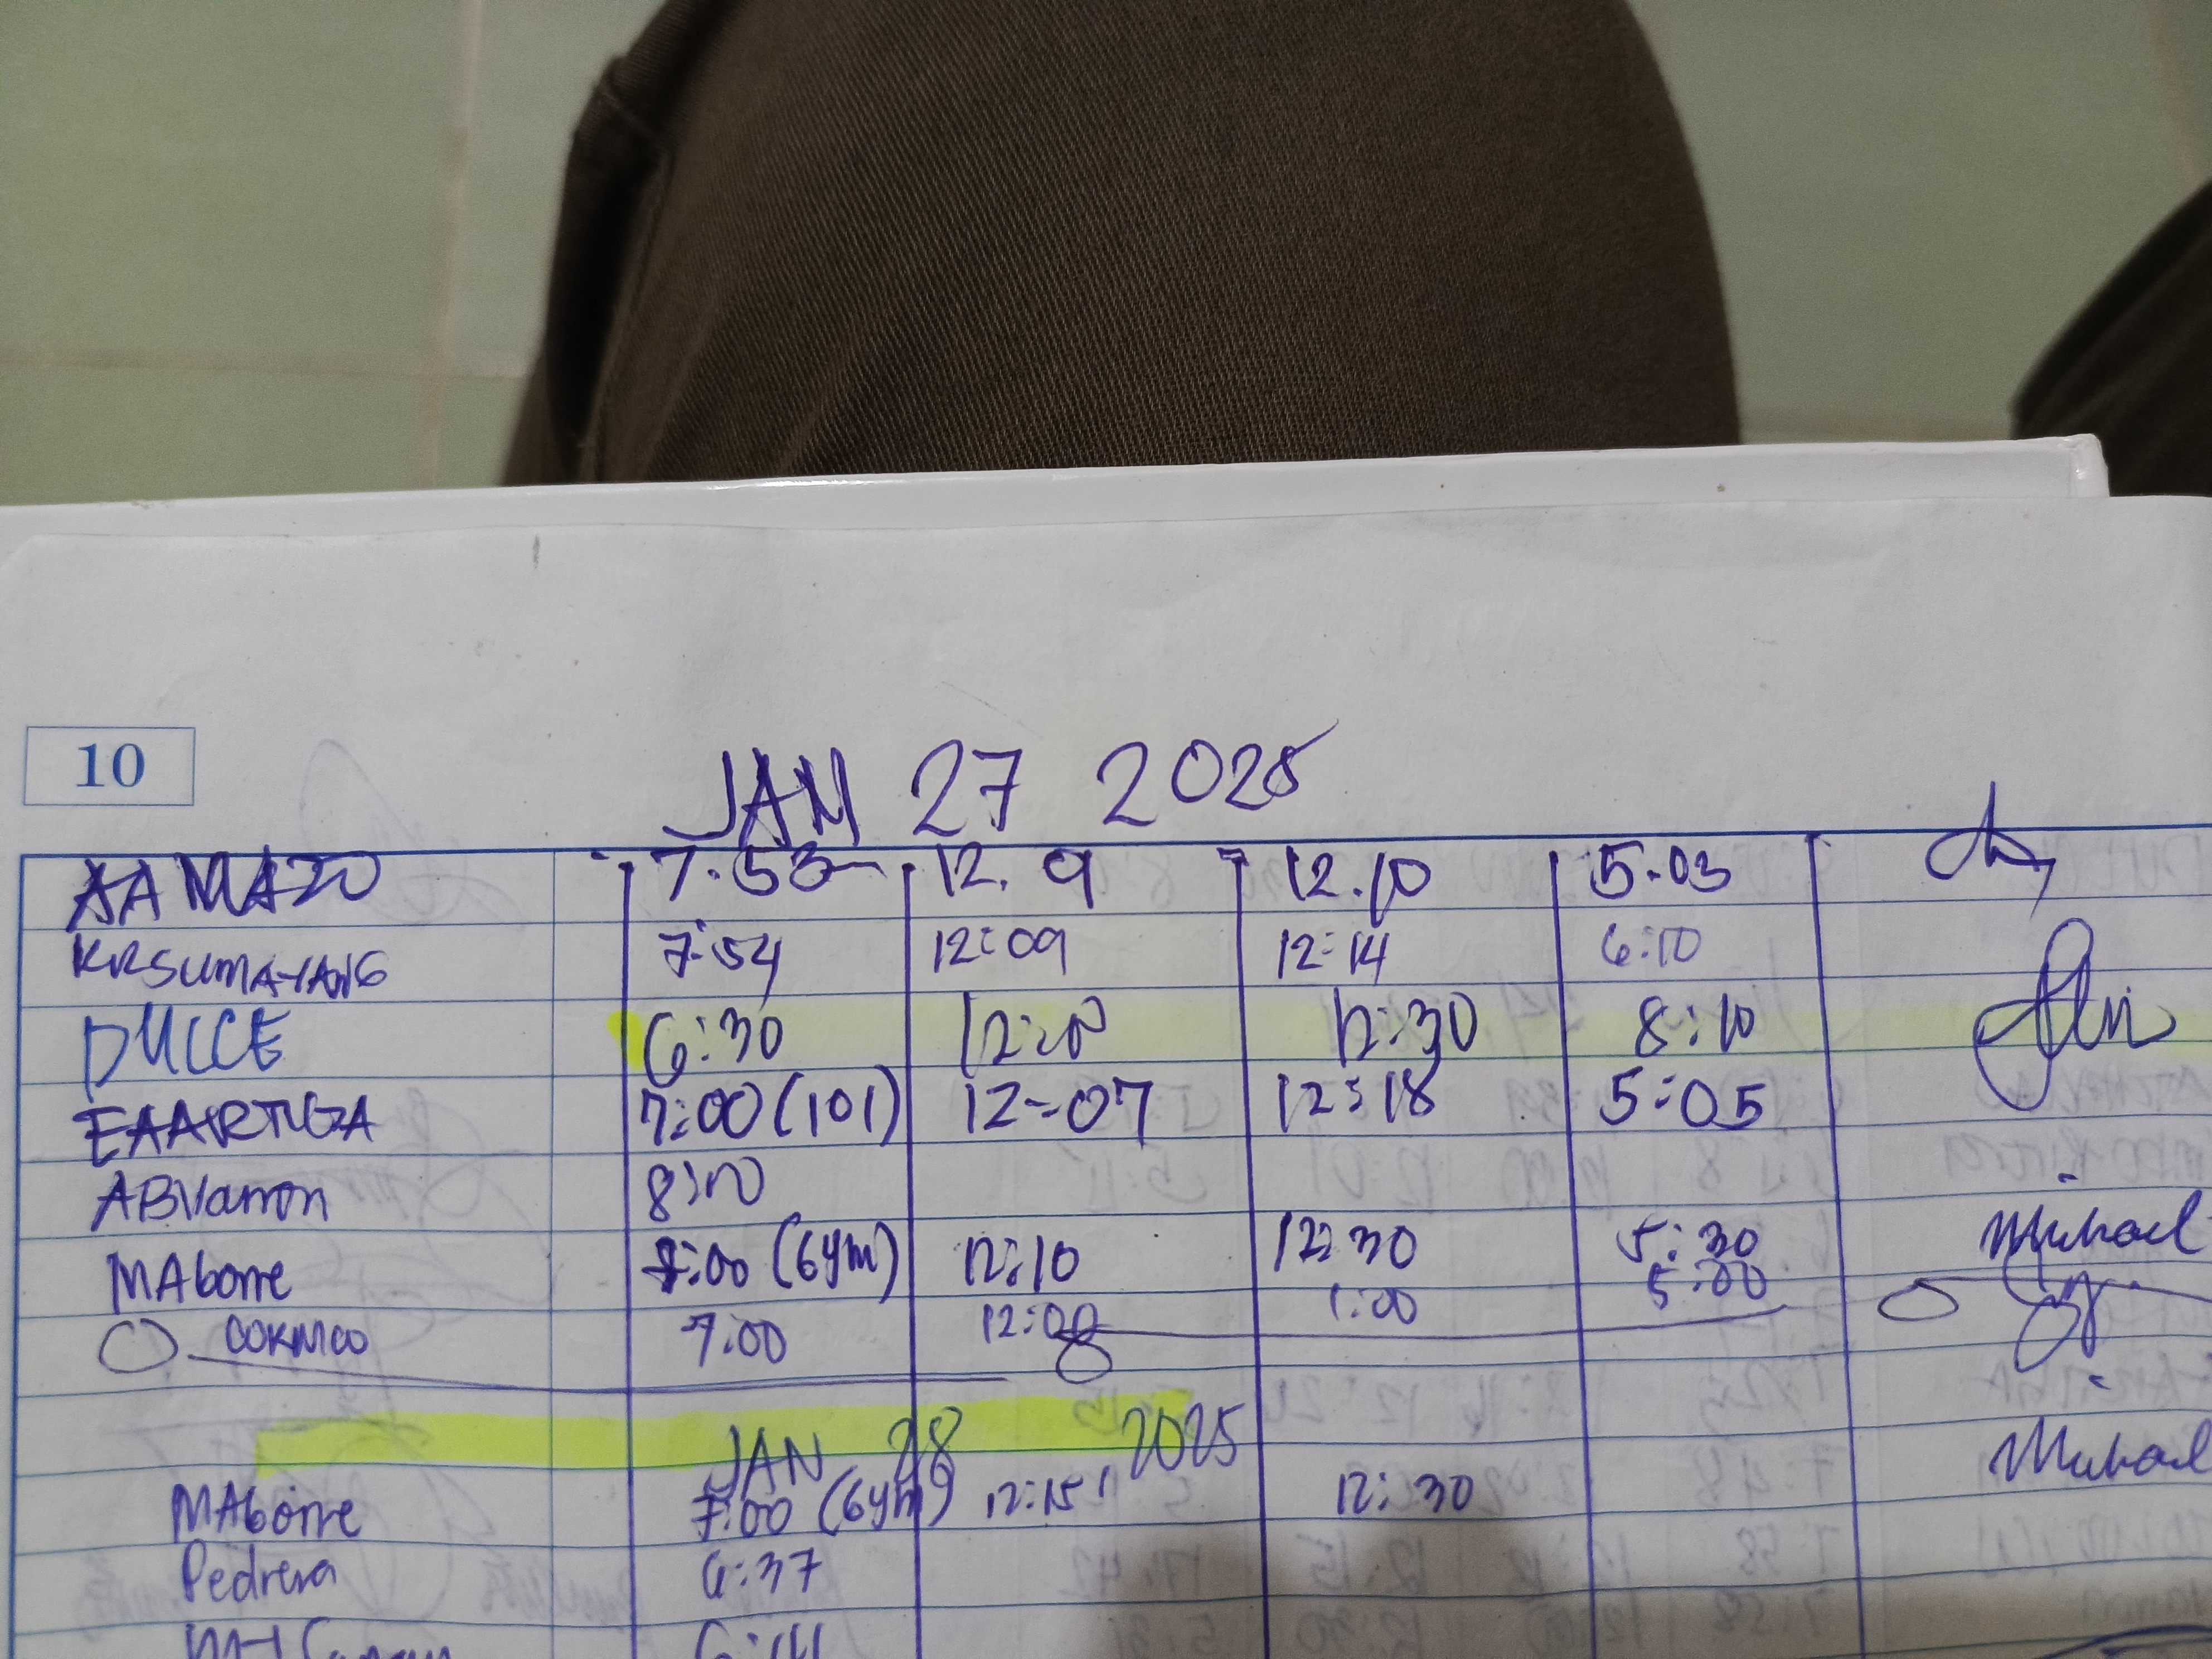 10
JAN 27 2025
AAMAZO 7.53 12.9 12.10 5.03
KRSUMAYANG 7:54 12:09 12:14 6:10
DULCE 6:30 12:10 12:30 8:10
EAARTIGA 7:00 (101) 12-07 12:18 5:05
ABVarron 8:10
MAborre 7:00 (Gym) 12:10 12:30 5:30 Michael
7:00 12:00 1:00 5:00
JAN 28, 2025
MAborre 7:00 (Gym) 12:15 12:30 Michael
Pedrera 6:37